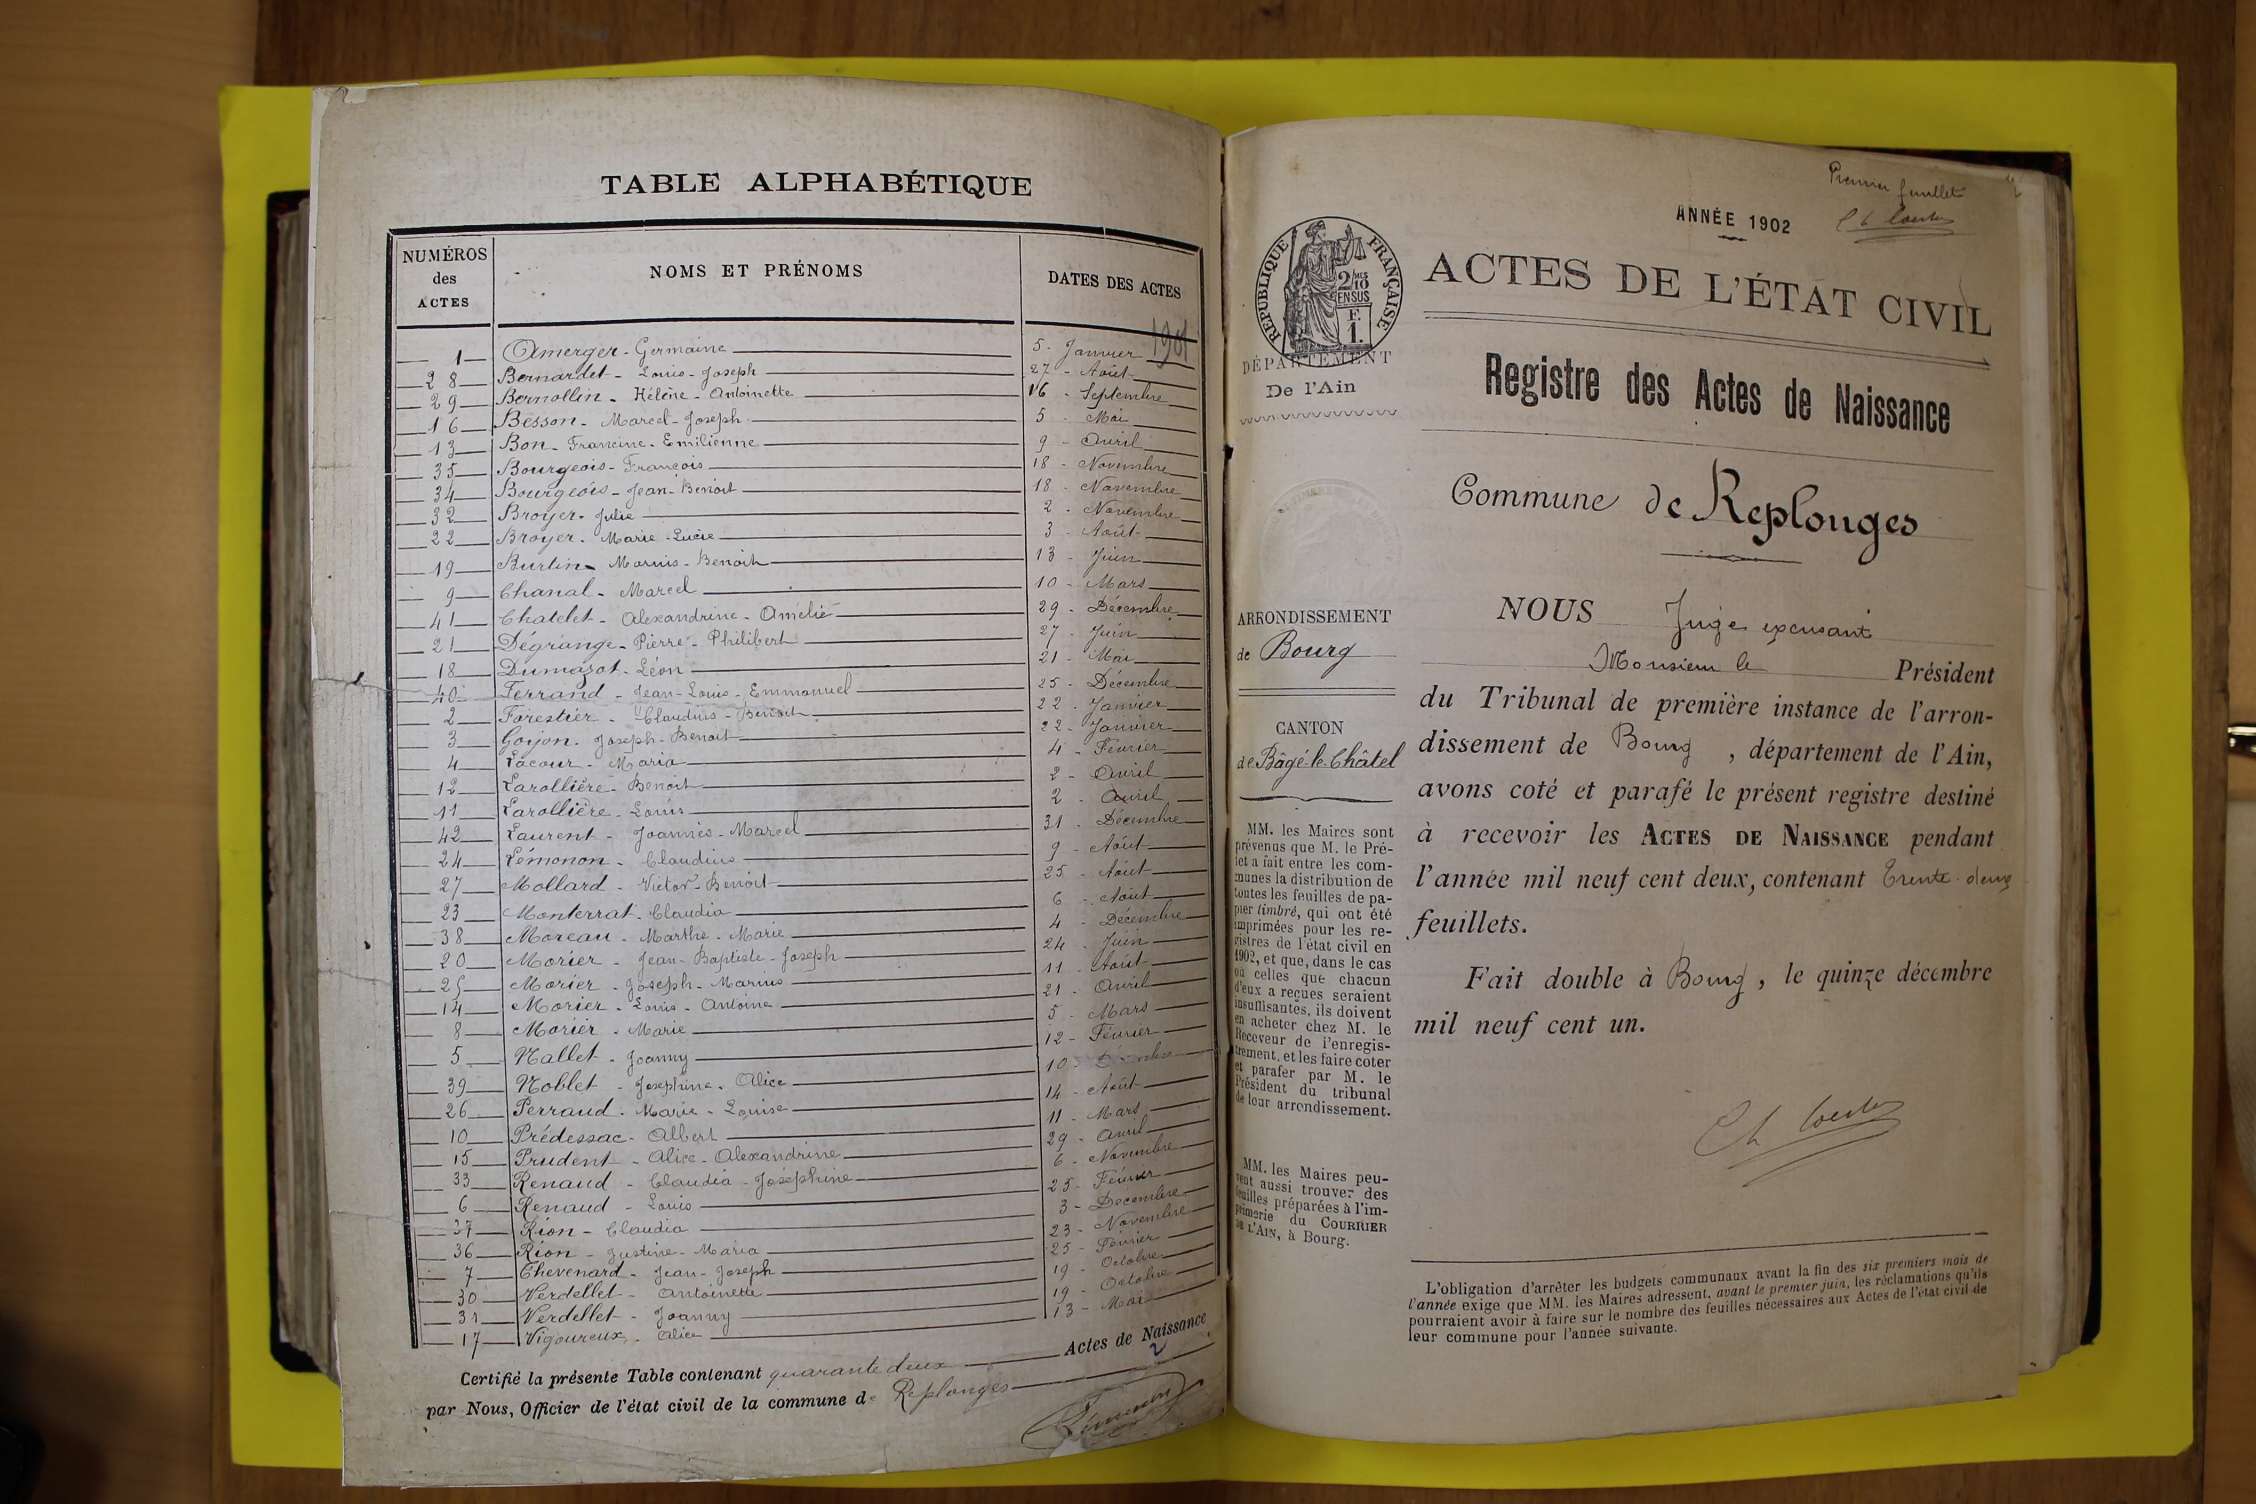 TABLE ALPHABÉTIQUE
NUMÉROS des ACTES
NOMS ET PRÉNOMS
DATES DES ACTES
1901
1 Amerger - Germaine 5 - Janvier
28 Bernardet - Louis - Joseph 27 - Août
29 Bernollin - Hélène - Antoinette 16 - Septembre
16 Besson - Marcel - Joseph 5 - Mai
13 Bon - Francine - Emilienne 9 - Avril
35 Bourgeois - François 18 - Novembre
34 Bourgeois - Jean - Benoit 18 - Novembre
32 Broyer - Julie 2 - Novembre
22 Broyer - Marie - Lucie 3 - Août
19 Burtin - Marius - Benoit 13 - Juin
9 Chanal - Marcel 10 - Mars
41 Chatelet - Alexandrine - Amélie 29 - Décembre
21 Dégrange - Pierre - Philibert 27 - Juin
18 Dumazot - Léon 21 - Mai
40 Ferrand - Jean - Louis - Emmanuel 25 - Décembre
2 Forestier - Claudius - Benoit 22 - Janvier
3 Goyon - Joseph - Benoit 22 - Janvier
4 Lacour - Maria 4 - Février
12 Larollière - Benoit 2 - Avril
11 Larollière - Louis 2 - Avril
42 Laurent - Joannès - Marcel 31 - Décembre
24 Lémonon - Claudius 9 - Août
27 Mollard - Victor - Benoit 25 - Août
23 Monterrat - Claudia 6 - Août
38 Moreau - Marthe - Marie 4 - Décembre
20 Morier - Jean - Baptiste - Joseph 24 - Juin
25 Morier - Joseph - Marius 11 - Août
14 Morier - Louis - Antoine 21 - Avril
8 Morier - Marie 5 - Mars
5 Nallet - Joanny 12 - Février
39 Noblet - Joséphine - Alice 10 - Décembre
26 Perraud - Marie - Louise 14 - Août
10 Prédessac - Albert 11 - Mars
15 Prudent - Alice - Alexandrine 29 - Avril
33 Renaud - Claudia - Joséphine 6 - Novembre
6 Renaud - Louis 25 - Février
37 Rion - Claudia 3 - Decembre
36 Rion - Justine - Maria 23 - Novembre
7 Thevenard - Jean - Joseph 25 - Février
30 Verdellet - Antoinette 19 - Octobre
31 Verdellet - Joanny 19 - Octobre
17 Vigoureux - Alice 13 - Mai
Certifié la présente Table contenant quarante deux Actes de Naissance
par Nous, Officier de l'état civil de la commune de Replonges
2
Lémonon
Premier feuillet
ANNÉE 1902
ACTES DE L'ÉTAT CIVIL
RÉPUBLIQUE FRANÇAISE
2/10 EN SUS
F. 1.
DÉPARTEMENT
De l'Ain
Registre des Actes de Naissance
Commune de Replonges
ARRONDISSEMENT
de Bourg
CANTON
de Bâgé-le-Châtel
MM. les Maires sont
prévenus que M. le Pré-
fet a fait entre les com-
munes la distribution de
toutes les feuilles de pa-
pier timbré, qui ont été
imprimées pour les re-
gistres de l'état civil en
1902, et que, dans le cas
où celles que chacun
d'eux a reçues seraient
insuffisantes, ils doivent
en acheter chez M. le
Receveur de l'enregis-
trement, et les faire coter
et parafer par M. le
Président du tribunal
de leur arrondissement.
MM. les Maires peu-
vent aussi trouver des
feuilles préparées à l'im-
primerie du COURRIER
DE L'AIN, à Bourg.
NOUS Juge excusant
Monsieur le Président
du Tribunal de première instance de l'arron-
dissement de Bourg, département de l'Ain,
avons coté et parafé le présent registre destiné
à recevoir les ACTES DE NAISSANCE pendant
l'année mil neuf cent deux, contenant Trente-deux
feuillets.
Fait double à Bourg, le quinze décembre
mil neuf cent un.
L'obligation d'arrêter les budgets communaux avant la fin des six premiers mois de
l'année exige que MM. les Maires adressent, avant le premier juin, les réclamations qu'ils
pourraient avoir à faire sur le nombre des feuilles nécessaires aux Actes de l'état civil de
leur commune pour l'année suivante.